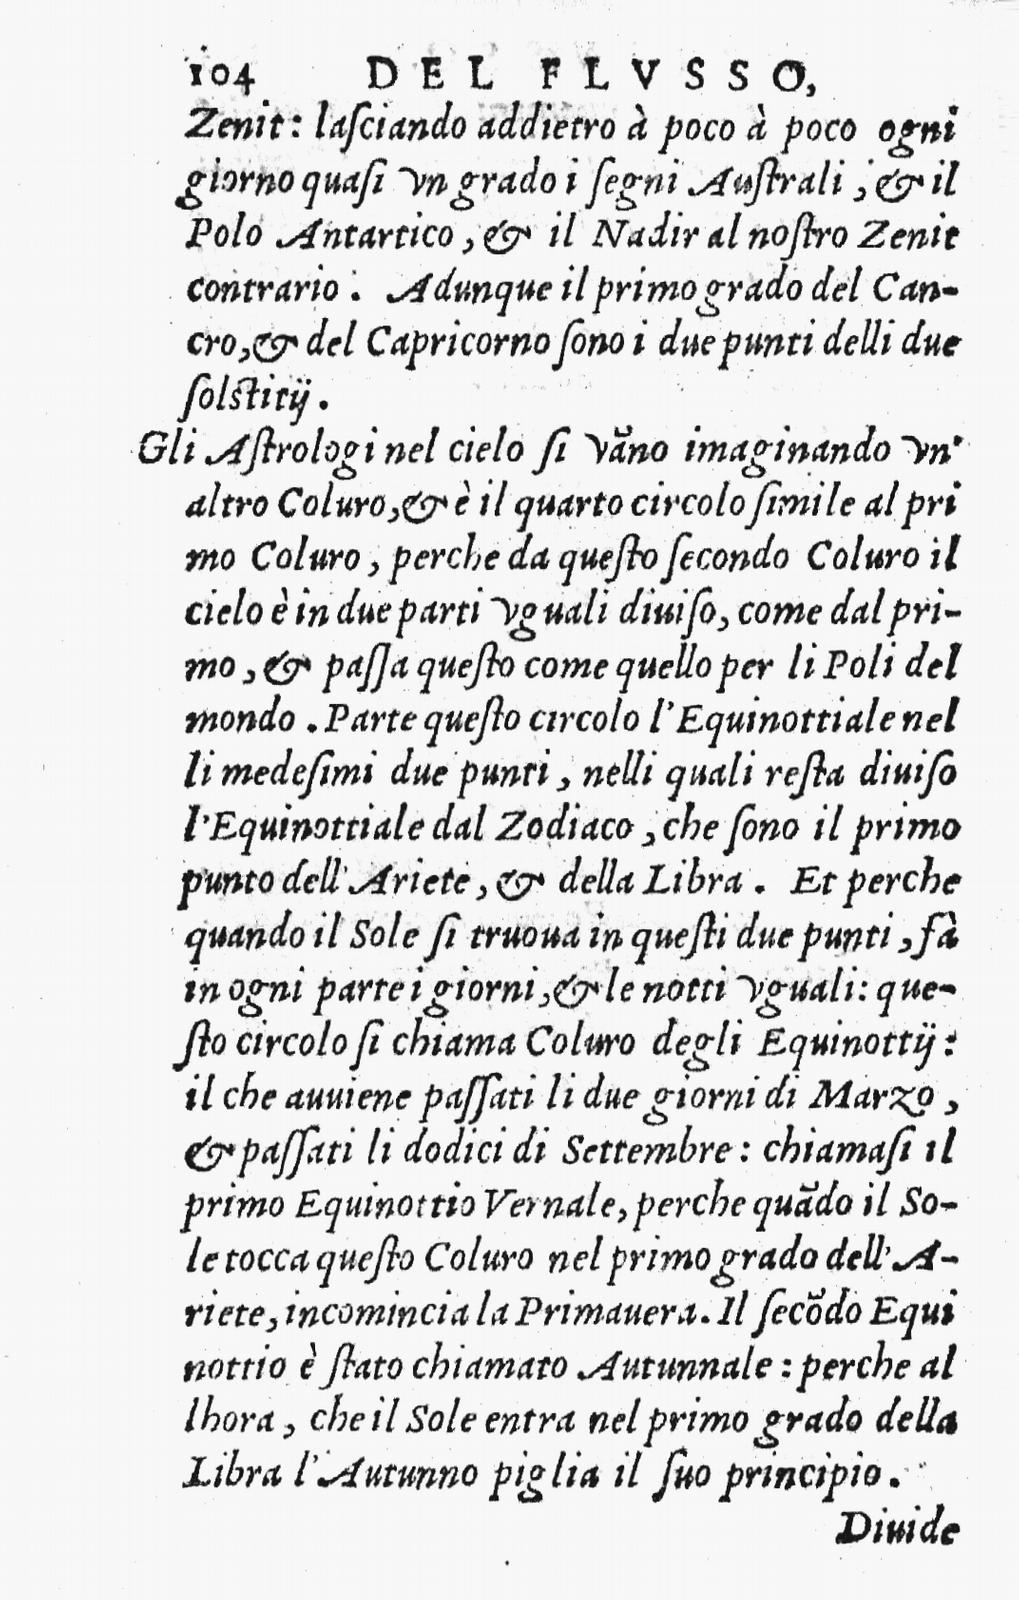 104 DEL FLVSSO,
Zenit: laſciando addietro à poco à poco ogni
giorno quaſi vn grado i ſegni Auſtrali, & il
Polo Antartico, & il Nadir al noſtro Zenit
contrario. Adunque il primo grado del Can-
cro, & del Capricorno ſono i due punti delli due
ſolſtitij.
Gli Aſtrologi nel cielo ſi vãno imaginando vn'
altro Coluro, & è il quarto circolo ſimile al pri
mo Coluro, perche da queſto ſecondo Coluro il
cielo è in due parti vguali diuiſo, come dal pri-
mo, & paſſa queſto come quello per li Poli del
mondo. Parte queſto circolo l'Equinottiale nel
li medeſimi due punti, nelli quali reſta diuiſo
l'Equinottiale dal Zodiaco, che ſono il primo
punto dell'Ariete, & della Libra. Et perche
quando il Sole ſi truoua in queſti due punti, fà
in ogni parte i giorni, & le notti vguali: que-
ſto circolo ſi chiama Coluro degli Equinottij:
il che auuiene paſſati li due giorni di Marzo,
& paſſati li dodici di Settembre: chiamaſi il
primo Equinottio Vernale, perche quãdo il So-
le tocca queſto Coluro nel primo grado dell'A-
riete, incomincia la Primauera. Il ſecõdo Equi
nottio è ſtato chiamato Autunnale: perche al
lhora, che il Sole entra nel primo grado della
Libra l'Autunno piglia il ſuo principio.
Diuide